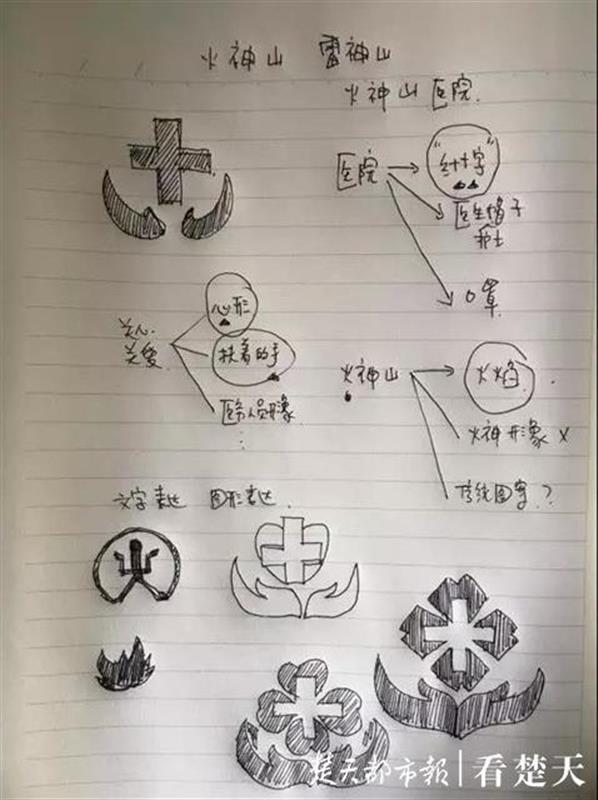 火神山 雷神山
火神山医院
医院
"红十字"
医生帽子
护士
口罩
关心
关爱
心形
扶着的手
医务人员形象
⋮
火神山
火焰
火神形象 X
传统图案?
文字表达 图形表达
火
楚天都市報|看楚天